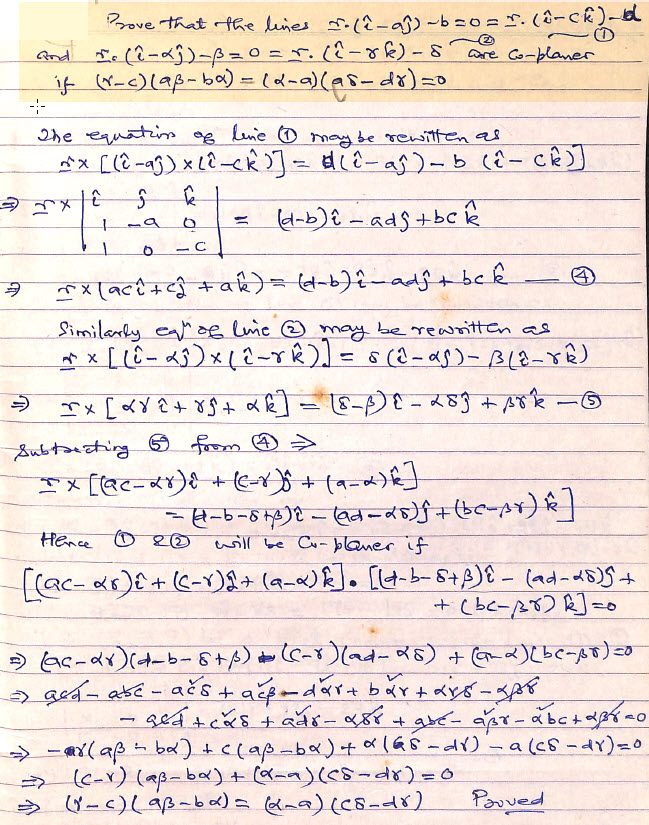 Prove that the lines r.(î-aĵ)-b=0=r.(î-ck̂)-d ①
and r.(î-αĵ)-β=0=r.(î-γk̂)-δ ② are co-planer
if (γ-c)(aβ-bα)=(α-a)(aδ-dγ)=0
The equation of line ① may be rewritten as
r×[(î-aĵ)×(î-ck̂)]=d(î-aĵ)-b(î-ck̂)]
⇒ r×|î ĵ k̂
1 -a 0
1 0 -c| = (d-b)î-adĵ+bck̂
⇒ r×(acî+cĵ+ak̂)=(d-b)î-adĵ+bck̂ — ④
Similarly eqn of line ② may be rewritten as
r×[(î-αĵ)×(î-γk̂)]=δ(î-αĵ)-β(î-γk̂)
⇒ r×[αγî+γĵ+αk̂]=(δ-β)î-αδĵ+βγk̂ — ⑤
Subtracting ⑤ from ④ ⇒
r×[(ac-αγ)î+(c-γ)ĵ+(a-α)k̂]
=(d-b-δ+β)î-(ad-αδ)ĵ+(bc-βγ)k̂]
Hence ① & ② will be co-planer if
[(ac-αγ)î+(c-γ)ĵ+(a-α)k̂].[(d-b-δ+β)î-(ad-αδ)ĵ+
+(bc-βγ)k̂]=0
⇒ (ac-αγ)(d-b-δ+β)-(c-γ)(ad-αδ)+(a-α)(bc-βγ)=0
⇒ acd-abc-acδ+acβ-dαγ+bαγ+αγδ-αβγ
-acd+cαδ+adγ-αδγ+abc-aβγ-αbc+αβγ=0
⇒ -γ(aβ-bα)+c(aβ-bα)+α(cδ-dγ)-a(cδ-dγ)=0
⇒ (c-γ)(aβ-bα)+(α-a)(cδ-dγ)=0
⇒ (γ-c)(aβ-bα)=(α-a)(cδ-dγ) Proved